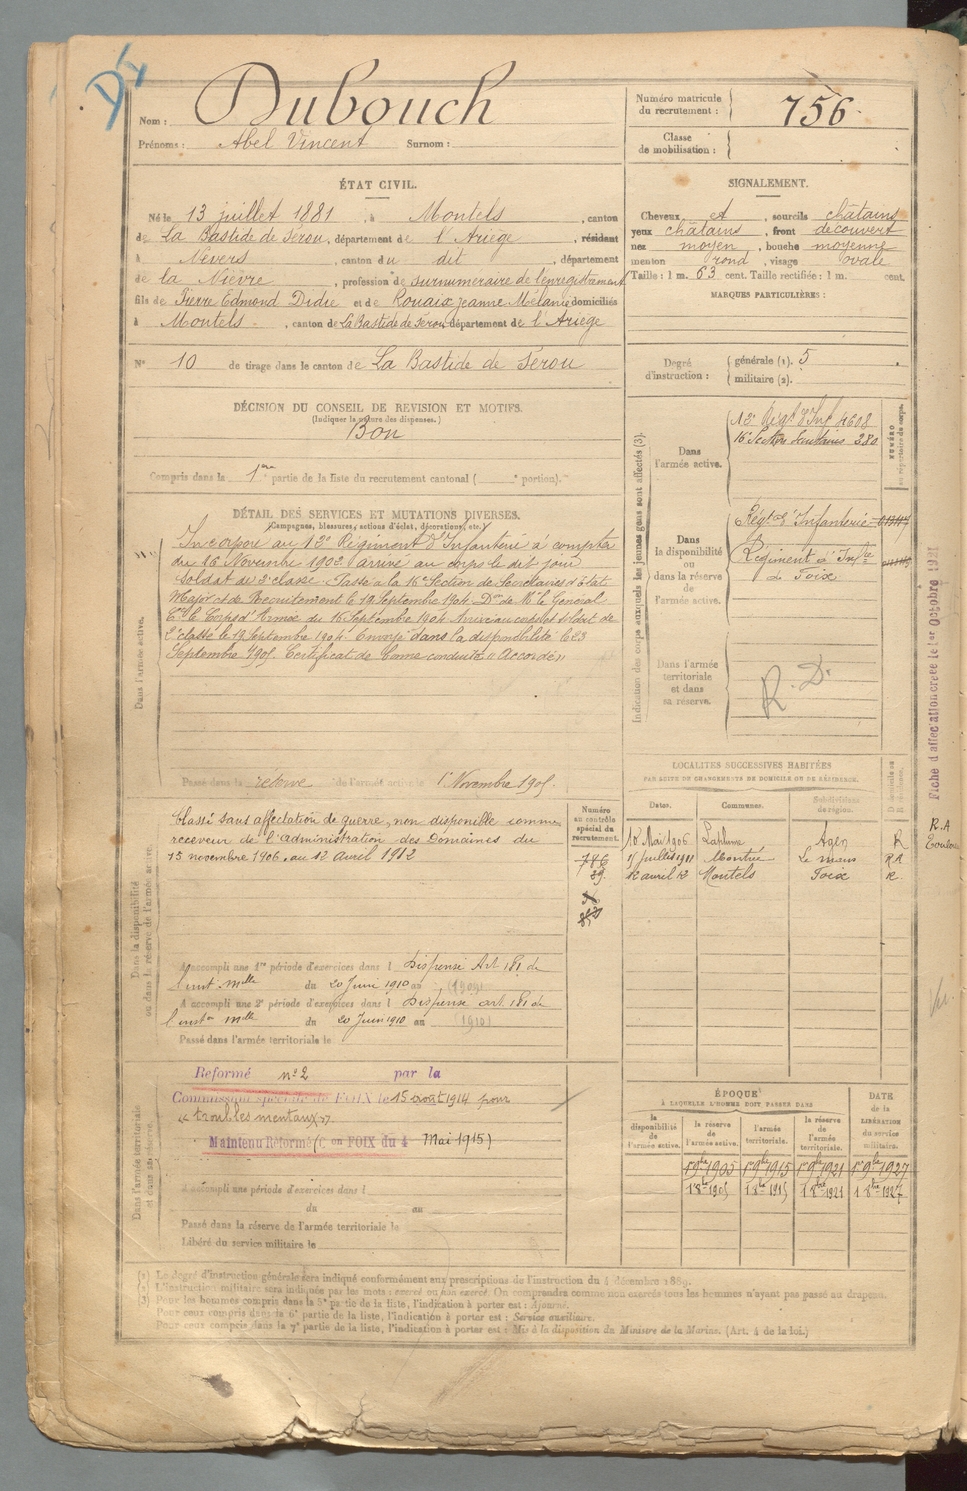 Nom : Dubouch
Prénoms : Abel Vincent Surnom :
Numéro matricule du recrutement : 756
Classe de mobilisation :
ÉTAT CIVIL.
Né le 13 juillet 1881, à Montels, canton
de La Bastide de Sérou, département de l'Ariège, résidant
à Nevers, canton du dit, département
de la Nièvre, profession de surnuméraire de l'enregistrement
fils de Pierre Edmond Didie et de Rouaix Jeanne Mélanie domiciliés
à Montels, canton de La Bastide de Serou département de l'Ariège
N° 10 de tirage dans le canton de La Bastide de Serou
SIGNALEMENT.
Cheveux et, sourcils châtains
yeux châtains, front découvert
nez moyen, bouche moyenne
menton rond, visage ovale
Taille : 1 m. 63 cent. Taille rectifiée : 1 m. cent.
MARQUES PARTICULIÈRES :
Degré d'instruction : générale (1). 5
militaire (2).
DÉCISION DU CONSEIL DE REVISION ET MOTIFS.
(Indiquer la nature des dispenses.)
Bon
Compris dans la 1re partie de la liste du recrutement cantonal ( e portion).
DÉTAIL DES SERVICES ET MUTATIONS DIVERSES.
Campagnes, blessures, actions d'éclat, décorations, etc.
Dans l'armée active.
Incorporé au 13e Régiment d'Infanterie à compter
du 16 Novembre 1902 arrivé au corps le dit jour
soldat de 2e classe. Passé à la 16e Section de Secrétaires d'État
Major et de Recrutement le 19 Septembre 1904. Don de Mr le Général
Ct le Corps d'Armée du 16 Septembre 1904 Arrivé au corps et soldat de
2e classe le 19 Septembre 1904. Envoyé dans la disponibilité le 23
Septembre 1905. Certificat de bonne conduite "Accordé"
Passé dans la réserve de l'armée active le 1er Novembre 1905.
Indication des corps auxquels les jeunes gens sont affectés (3).
NUMÉRO au répertoire du corps.
Dans l'armée active.
13e Régt d'Inf 4608
16e Section Secrétaires 380
Dans la disponibilité ou dans la réserve de l'armée active.
Régt d'Infanterie
Régiment d'Infie
de Foix
Dans l'armée territoriale et dans sa réserve.
R. D.
Fiche d'affectation créée le 1er Octobre 1921
LOCALITÉS SUCCESSIVES HABITÉES
PAR SUITE DE CHANGEMENTS DE DOMICILE OU DE RÉSIDENCE.
Dates. Communes. Subdivisions de région. Domicile ou Résidence.
10 Mai 1906 Laplume Agen R
15 juillet 1911 Le mans RA
12 avril 12 Montels Foix R.
R.A
Numéro au contrôle spécial du recrutement.
786
39
Dans la disponibilité ou dans la réserve de l'armée active.
Classé sans affectation de guerre, non disponible comme
receveur de l'administration des Domaines du
15 novembre 1906, au 12 avril 1912
A accompli une 1re période d'exercices dans l Dispensé Art. 181 de
l'inst. melle du 20 Juin 1910 au (1909)
A accompli une 2e période d'exercices dans l Dispensé art. 181 de
l'inston melle du 20 Juin 1910 au (1910)
Passé dans l'armée territoriale le
Dans l'armée territoriale et dans sa réserve.
Réformé n° 2 par la
Commission spéciale de FOIX le 15 août 1914 pour
"troubles mentaux"
Maintenu Réformé (Con FOIX du 4 Mai 1915)
A accompli une période d'exercices dans l
du au
Passé dans la réserve de l'armée territoriale le
Libéré du service militaire le
ÉPOQUE
A LAQUELLE L'HOMME DOIT PASSER DANS
la disponibilité de l'armée active. la réserve de l'armée active. l'armée territoriale. la réserve de l'armée territoriale.
DATE de la LIBÉRATION du service militaire.
1er 9bre 1905 1er 9bre 1915 1er 9bre 1921 1er 9bre 1927
1 8bre 1905 1 8bre 1915 1 8bre 1921 1 8bre 1927
(1) Le degré d'instruction générale sera indiqué conformément aux prescriptions de l'instruction du 4 décembre 1889.
(2) L'instruction militaire sera indiquée par les mots : exercé ou non exercé. On comprendra comme non exercés tous les hommes n'ayant pas passé au drapeau.
(3) Pour les hommes compris dans la 5e partie de la liste, l'indication à porter est : Ajourné.
Pour ceux compris dans la 6e partie de la liste, l'indication à porter est : Service auxiliaire.
Pour ceux compris dans la 7e partie de la liste, l'indication à porter est : Mis à la disposition du Ministre de la Marine. (Art. 4 de la loi.)